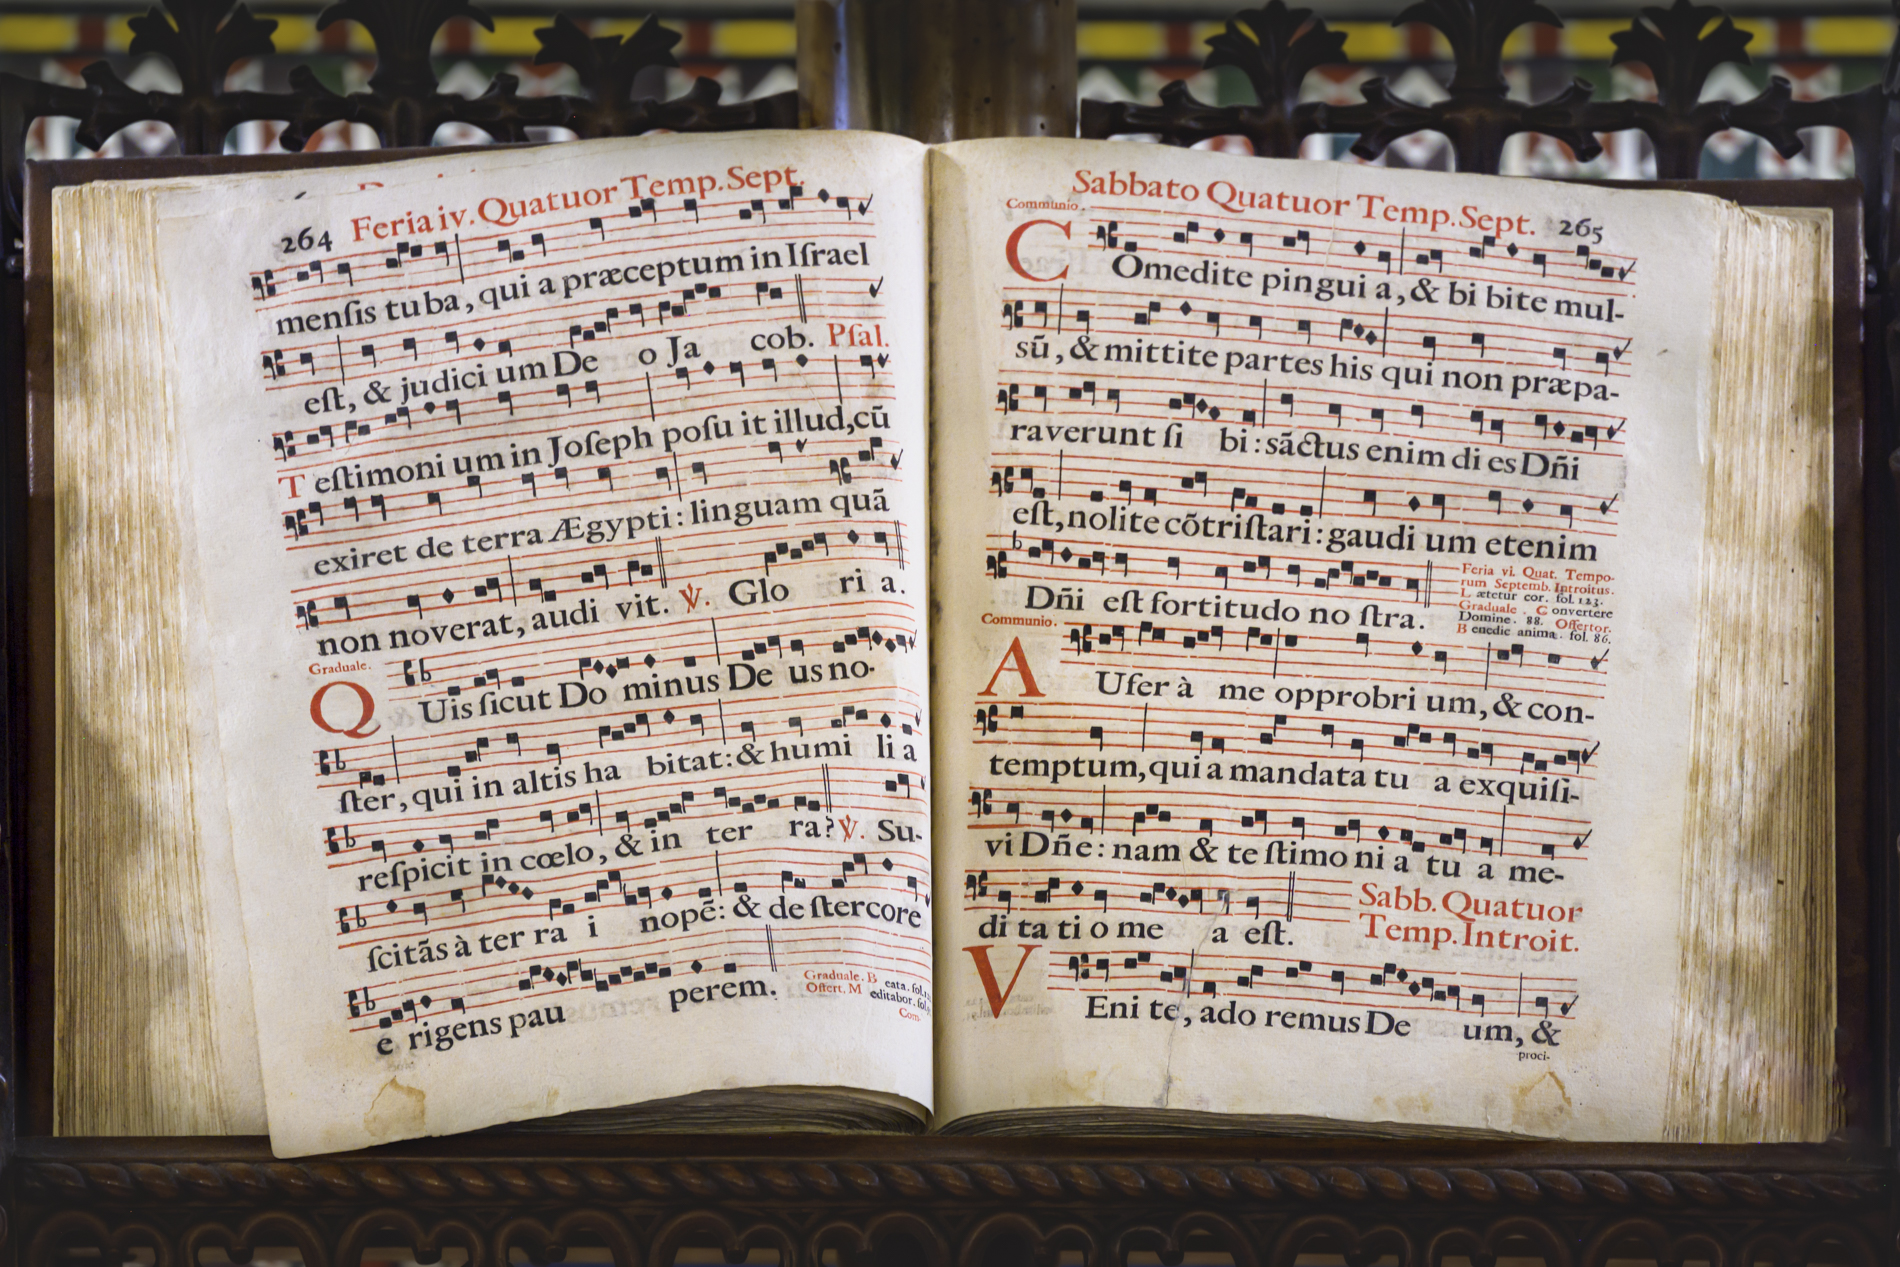 264 Feria iv. Quatuor Temp. Sept.
menſis tu ba, qui a præceptum in Iſrael
eſt, & judici um De o Ja cob. Pſal.
T eſtimoni um in Joſeph poſu it illud, cũ
exiret de terra Ægypti : linguam quã
non noverat, audi vit. ℣. Glo ri a.
Graduale.
QUis ſicut Do minus De us no-
ſter, qui in altis ha bitat : & humi li a
reſpicit in cœlo, & in ter ra? ℣. Su-
ſcitãs à ter ra i nopẽ : & de ſtercore
e rigens pau perem.
Graduale. B eata. fol.
Offert. M editabor. fol.
Com.
Sabbato Quatuor Temp. Sept. 265
Communio.
COmedite pingui a, & bi bite mul-
sũ, & mittite partes his qui non præpa-
raverunt ſi bi : sãctus enim di es Dñi
eſt, nolite cõtriſtari : gaudi um etenim
Dñi eſt fortitudo no ſtra.
Feria vi. Quat. Tempo-
rum Septemb. Introitus.
L ætetur cor. fol. 123.
Graduale. C onvertere
Domine. 88. Offertor.
B enedic anima. fol. 86.
Communio.
AUfer à me opprobri um, & con-
temptum, qui a mandata tu a exquiſi-
vi Dñe : nam & te ſtimo ni a tu a me-
di ta ti o me a eſt.
Sabb. Quatuor
Temp. Introit.
VEni te, ado remus De um, &
proci-